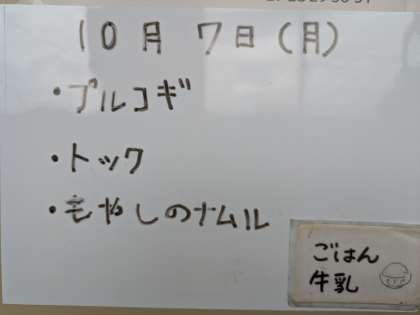 10月 7日(月)
・プルコギ
・トック
・もやしのナムル
ごはん
牛乳